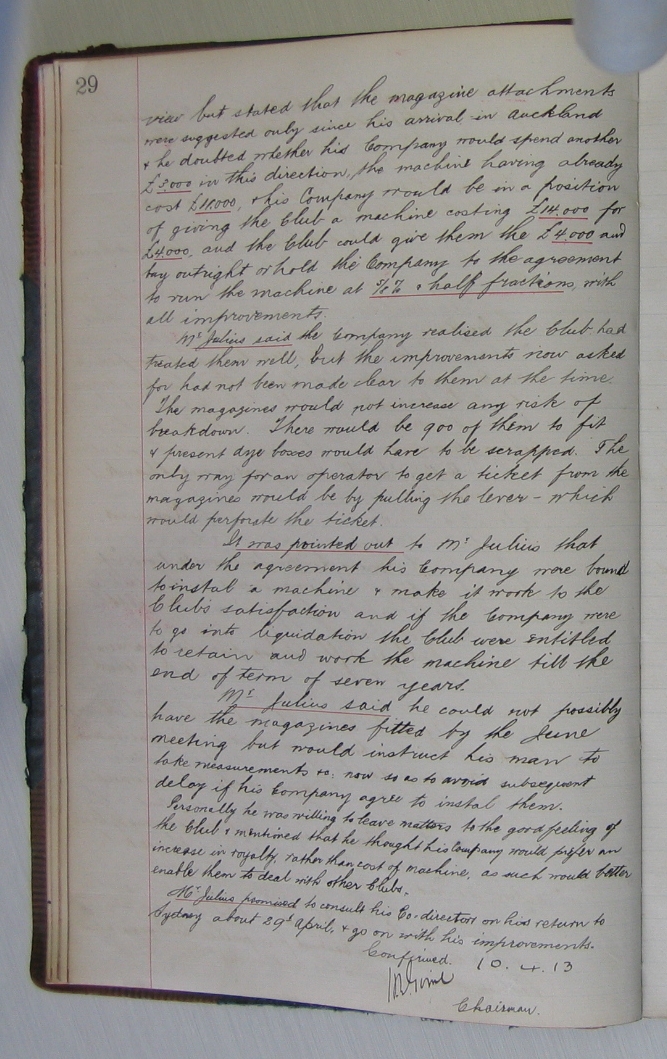 29
view but stated that the magazine attachments
were suggested only since his arrival in Auckland
& he doubted whether his Company would spend another
£3,000 in this direction, the machine having already
cost £11,000, & his Company would be in a position
of giving the Club a machine costing £14,000 for
£4,000, and the Club could give them the £4,000 and
buy outright or hold the Company to the agreement
to run the machine at & half fractions, with
all improvements.
Mr Julius said the Company realised the Club had
treated them well, but the improvements now asked
for had not been made clear to them at the time.
The magazines would not increase any risk of
breakdown. There would be 900 of them to fit
& present dye boxes would have to be scrapped. The
only way for an operator to get a ticket from the
magazines would be by pulling the lever – which
would perforate the ticket.
It was pointed out to Mr Julius that
under the agreement his Company were bound
to instal a machine & make it work to the
Clubs satisfaction and if the Company were
to go into liquidation the Club were entitled
to retain and work the machine till the
end of term of seven years.
Mr Julius said he could not possibly
have the magazines fitted by the June
meeting but would instruct his man to
take measurements &c. now so as to avoid subsequent
delay if his Company agree to instal them.
Personally he was willing to leave matters to the good feeling of
the Club & mentioned that he thought his Company would prefer an
increase in royalty, rather than cost of machine, as such would better
enable them to deal with other Clubs.
Mr Julius promised to consult his Co-directors on his return to
Sydney about 29 April, & go on with his improvements.
Confirmed. 10.4.13
Chairman.